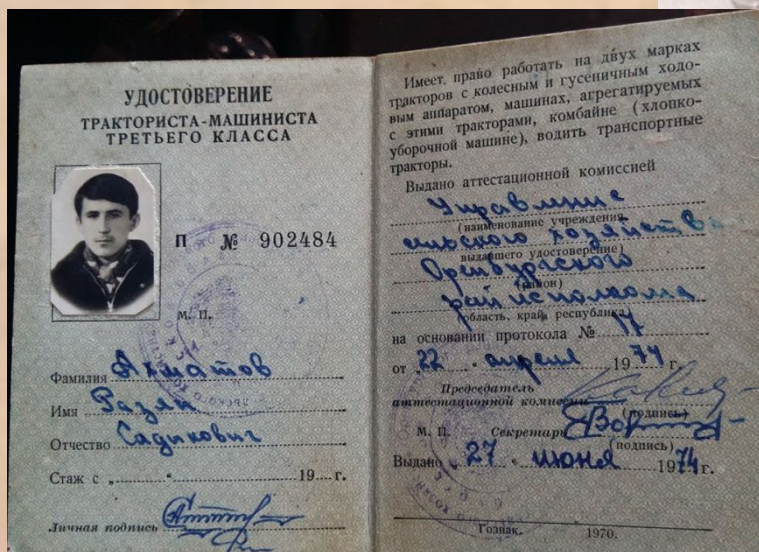 УДОСТОВЕРЕНИЕ
ТРАКТОРИСТА-МАШИНИСТА
ТРЕТЬЕГО КЛАССА
П № 902484
М. П.
Фамилия Ахматов
Имя
Отчество Садикович
Стаж с „ “ 19 г.
Личная подпись
Имеет право работать на двух марках
тракторов с колесным и гусеничным ходо-
вым аппаратом, машинах, агрегатируемых
с этими тракторами, комбайне (хлопко-
уборочной машине), водить транспортные
тракторы.
Выдано аттестационной комиссией
Управление
(наименование учреждения,
сельского хозяйства
выдавшего удостоверение)
Оренбургского
(район)
райисполкома
(область, край, республика)
на основании протокола № 17
от „22 “ апреля 1974 г.
Председатель
аттестационной комиссии
(подпись)
М. П. Секретарь
(подпись)
Выдано „ 27 “ июня 1974 г.
Гознак. 1970.